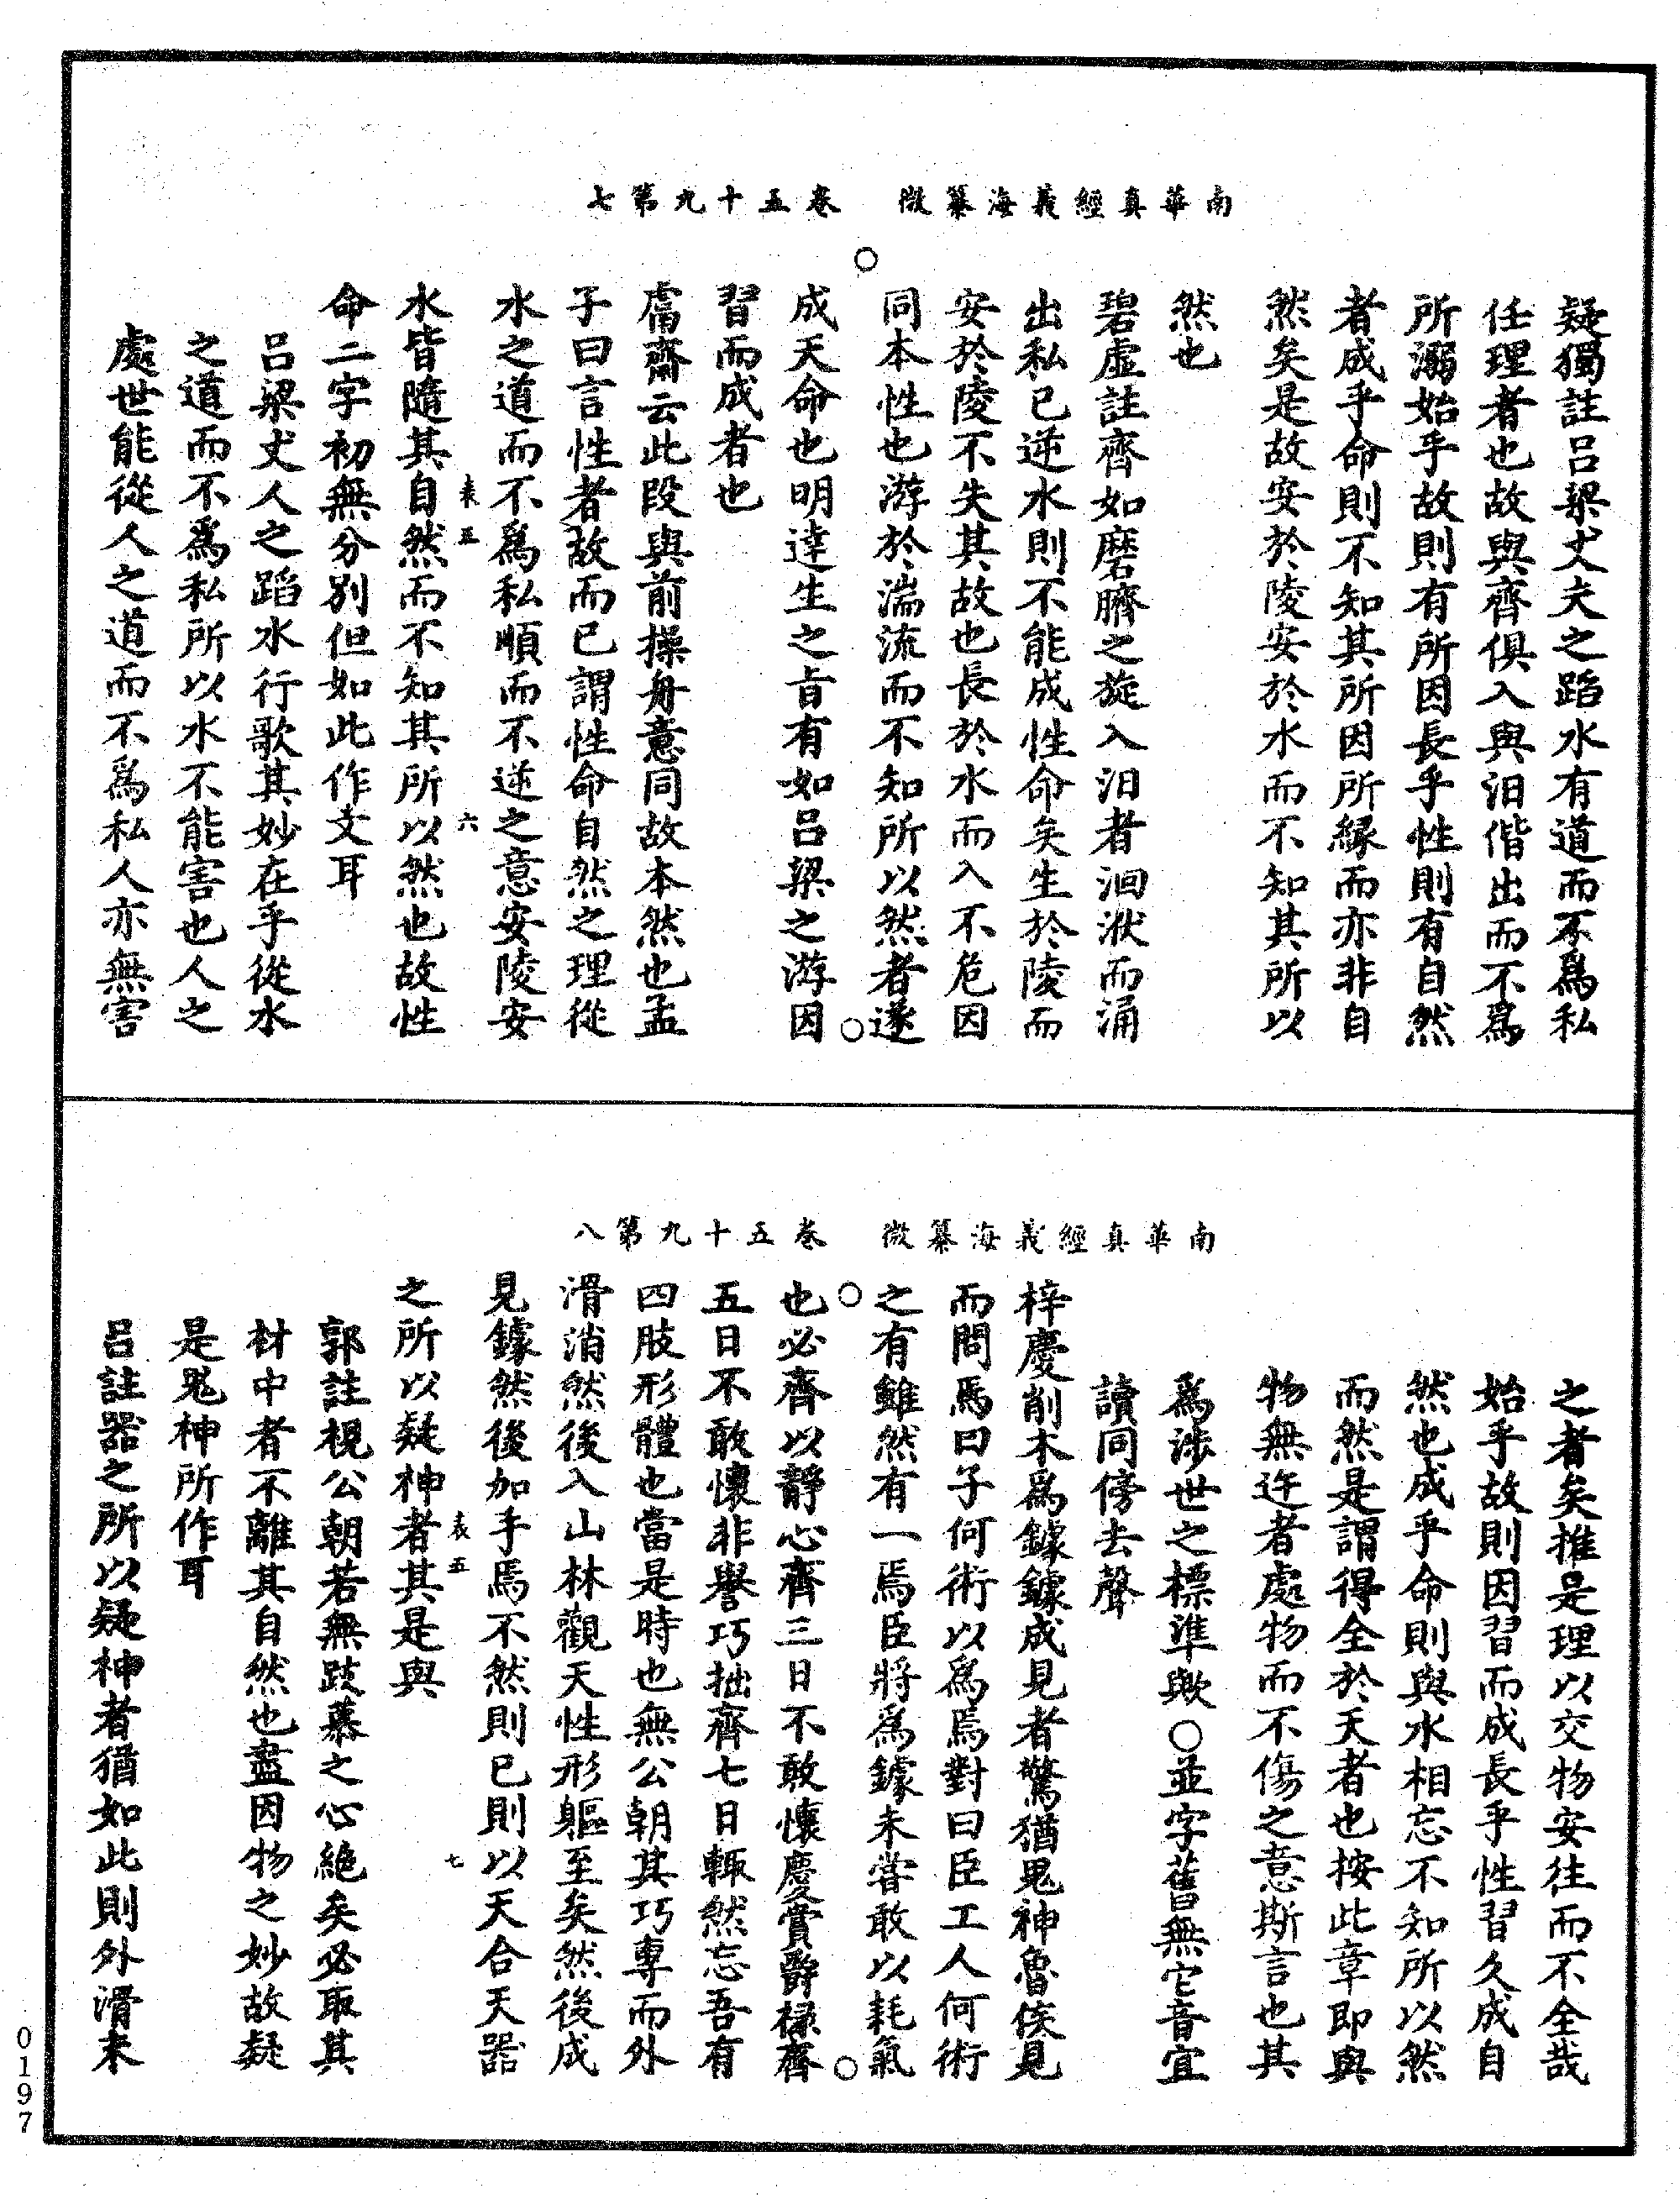 南華真經義海纂微　卷五十九第七
疑獨註呂梁丈夫之蹈水有道而不爲私
任理者也故與齊俱入與汨偕出而不爲
所溺始乎故則有所因長乎性則有自然
者成乎命則不知其所因所緣而亦非自
然矣是故安於陵安於水而不知其所以
然也
碧虛註齊如磨臍之旋入汨者洄洑而涌
出私己逆水則不能成性命矣生於陵而
安於陵不失其故也長於水而入不危因
同本性也游於湍流而不知所以然者遂
成天命也明達生之旨有如呂梁之游因
習而成者也
鬳齋云此段與前操舟意同故本然也孟
子曰言性者故而已謂性命自然之理從
水之道而不爲私順而不逆之意安陵安
水皆隨其自然而不知其所以然也故性
表五　六
命二字初無分別但如此作文耳
呂梁丈人之蹈水行歌其妙在乎從水
之道而不爲私所以水不能害也人之
處世能從人之道而不爲私人亦無害
南華真經義海纂微　卷五十九第八
之者矣推是理以交物安往而不全哉
始乎故則因習而成長乎性習久成自
然也成乎命則與水相忘不知所以然
而然是謂得全於天者也按此章即與
物無迕者處物而不傷之意斯言也其
爲涉世之標準歟○並字舊無它音宜
讀同傍去聲
梓慶削木爲鐻鐻成見者驚猶鬼神魯侯見
而問焉曰子何術以爲焉對曰臣工人何術
之有雖然有一焉臣將爲鐻未嘗敢以耗氣
也必齊以靜心齊三日不敢懷慶賞爵祿齊
五日不敢懷非譽巧拙齊七日輒然忘吾有
四肢形體也當是時也無公朝其巧專而外
滑消然後入山林觀天性形軀至矣然後成
見鐻然後加手焉不然則已則以天合天器
之所以疑神者其是與
表五　七
郭註視公朝若無跂慕之心絶矣必取其
材中者不離其自然也盡因物之妙故疑
是鬼神所作耳
呂註器之所以疑神者猶如此則外滑未
0197